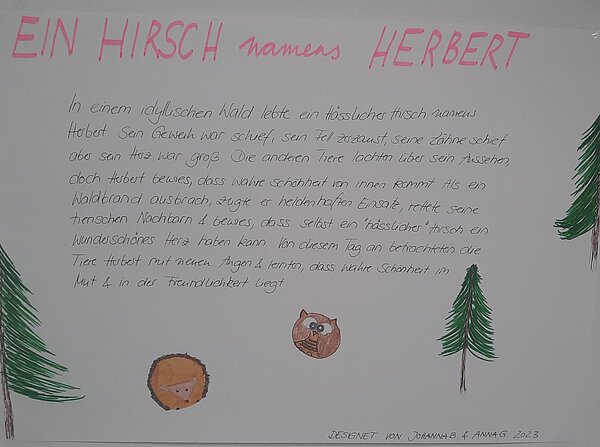 EIN HIRSCH namens HERBERT
In einem idyllischen Wald lebte ein hässlicher Hirsch namens
Herbert. Sein Geweih war schief, sein Fell zerzaust, seine Zähne schief
aber sein Herz war groß. Die anderen Tiere lachten über sein Aussehen,
doch Herbert bewies, dass wahre Schönheit von innen kommt. Als ein
Waldbrand ausbrach, zeigte er heldenhaften Einsatz, rettete seine
tierischen Nachbarn & bewies, dass selbst ein "hässlicher" Hirsch ein
wunderschönes Herz haben kann. Von diesem Tag an betrachteten die
Tiere Herbert mit neuen Augen & lernten, dass wahre Schönheit im
Mut & in der Freundlichkeit liegt.
DESIGNET VON JOHANNA B. & ANNA G. 2023